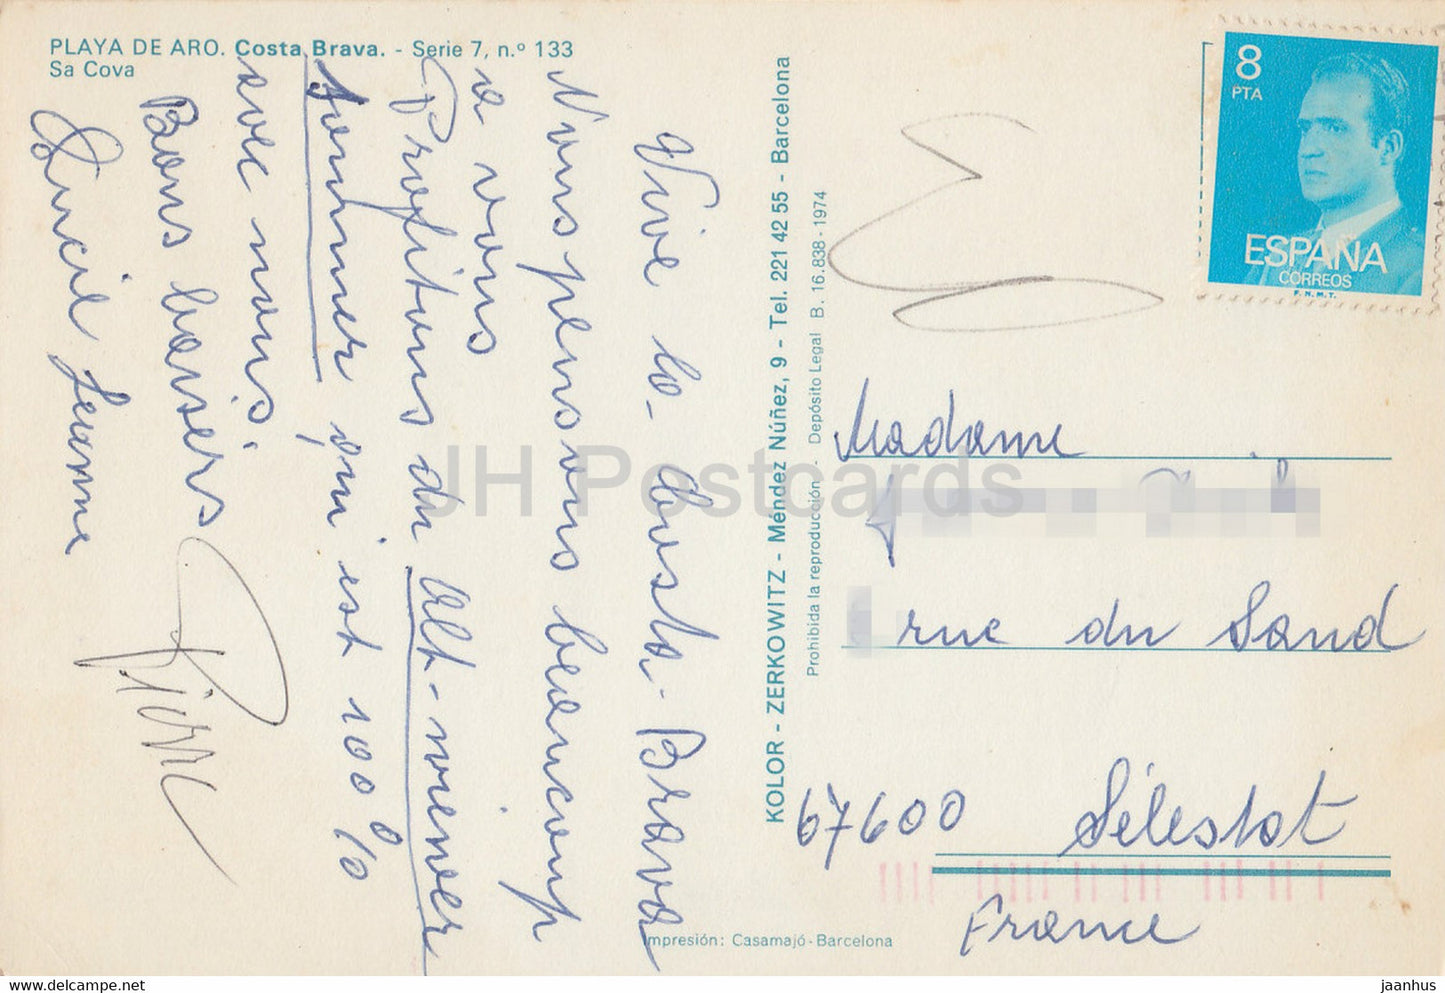 PLAYA DE ARO. Costa Brava. - Serie 7, n.º 133
Sa Cova
Vive la Costa-Brava
Nous pensons beaucoup
a vous
Profitons du
sommer qui est 100%
avec nous.
Bons baisers
Pierre
KOLOR - ZERKOWITZ - Méndez Núñez, 9 - Tel. 221 42 55 - Barcelona
Prohibida la reproducción - Depósito Legal B. 16.838-1974
Impresión: Casamajó-Barcelona
8
PTA
ESPAÑA
CORREOS
F.N.M.T.
Madame
rue du Sand
67600 Sélestat
France
JH Postcards
www.delcampe.net
jaanhus